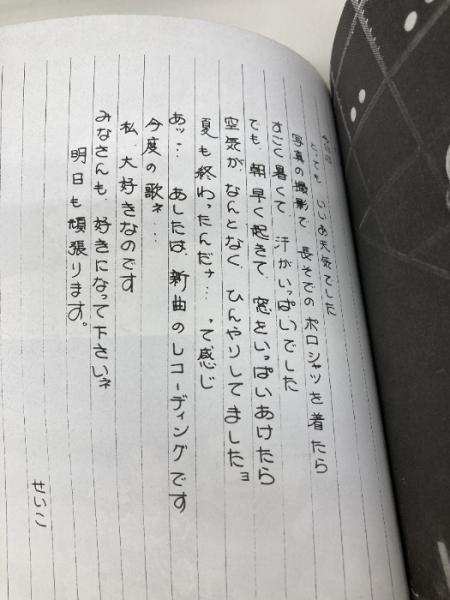 今日は
とっても いいお天気でした
写真の撮影で 長そでのポロシャツを着たら
すごく暑くて 汗がいっぱいでした
でも、朝早く起きて、窓をいっぱいあけたら
空気が、なんとなく、ひんやりしてましたョ
夏も終わったんだナ… って感じ
あッ… あしたは、新曲のレコーディングです
今度の歌ネ…
私、大好きなのです
みなさんも、好きになって下さいネ
明日も頑張ります。
せいこ